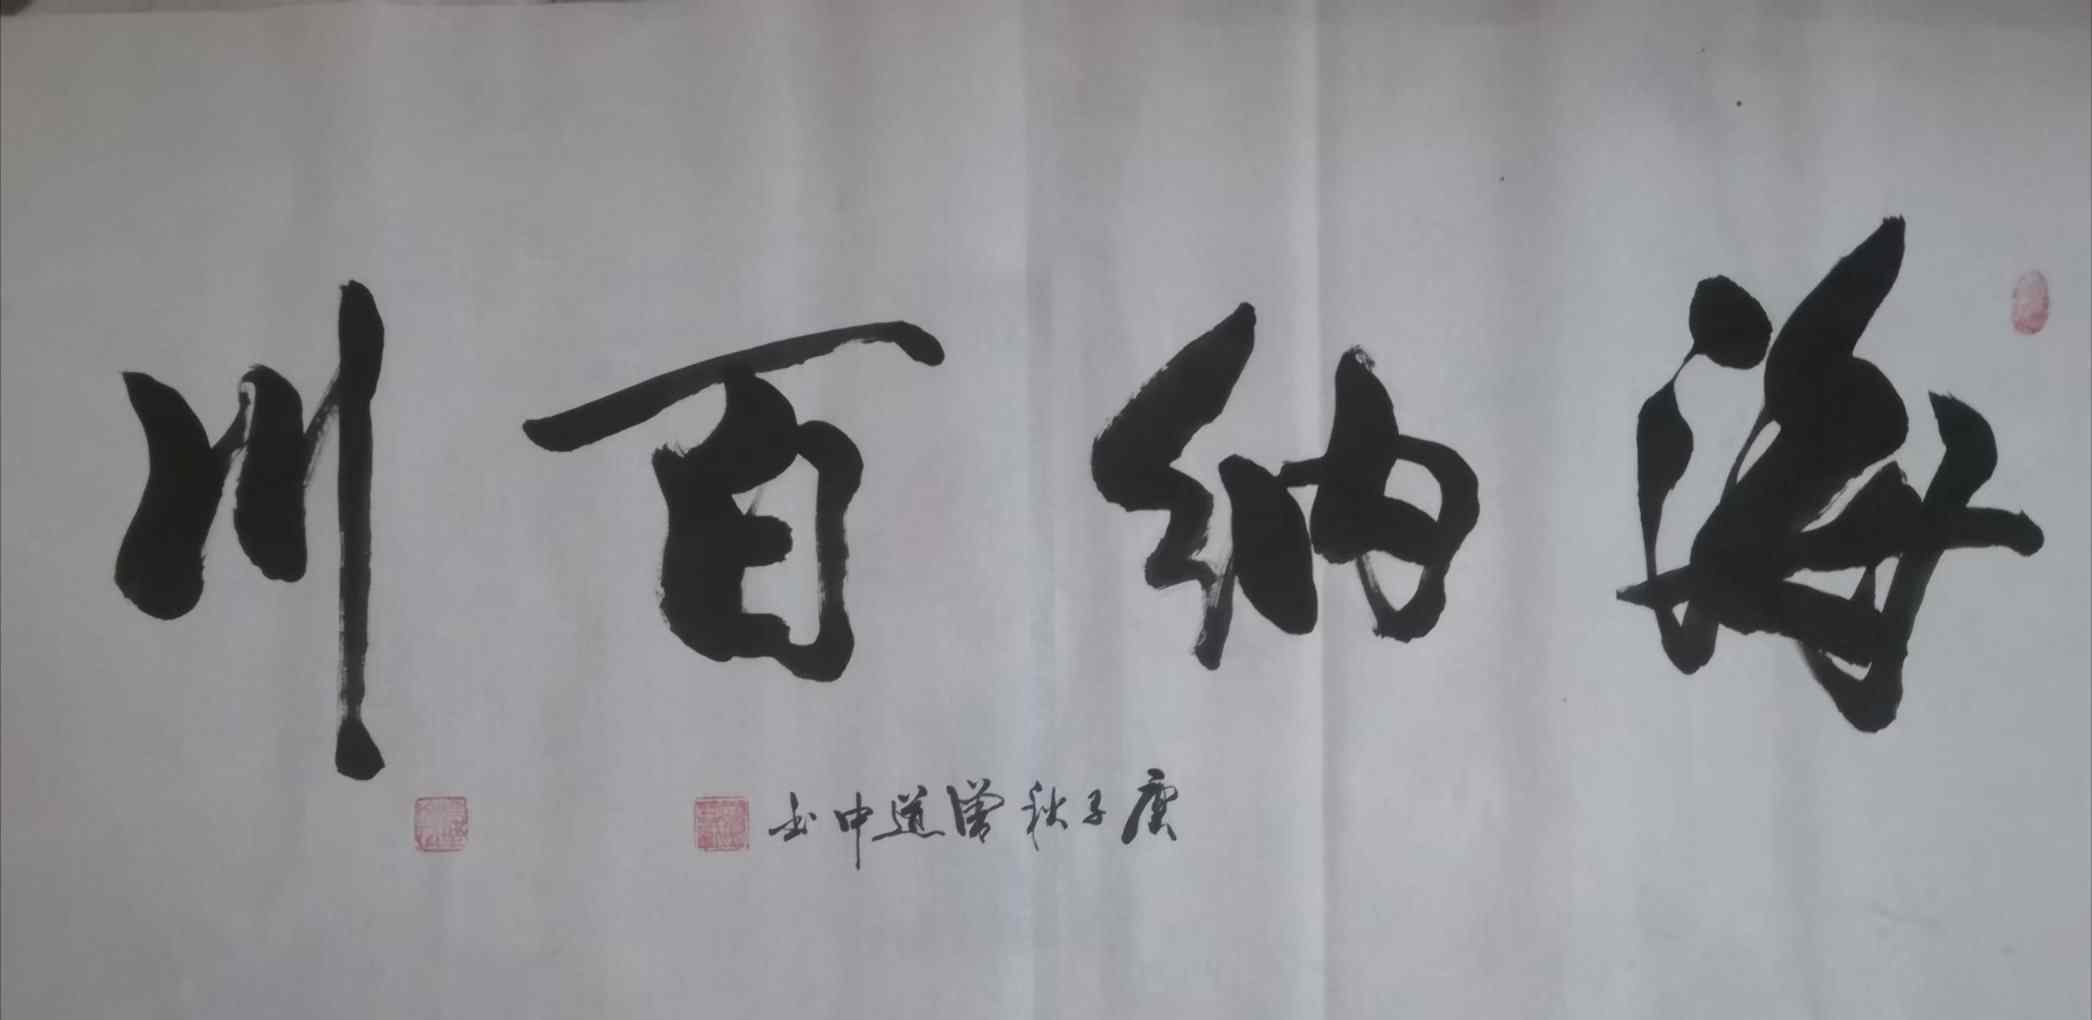 海纳百川
庚子秋曾道中书